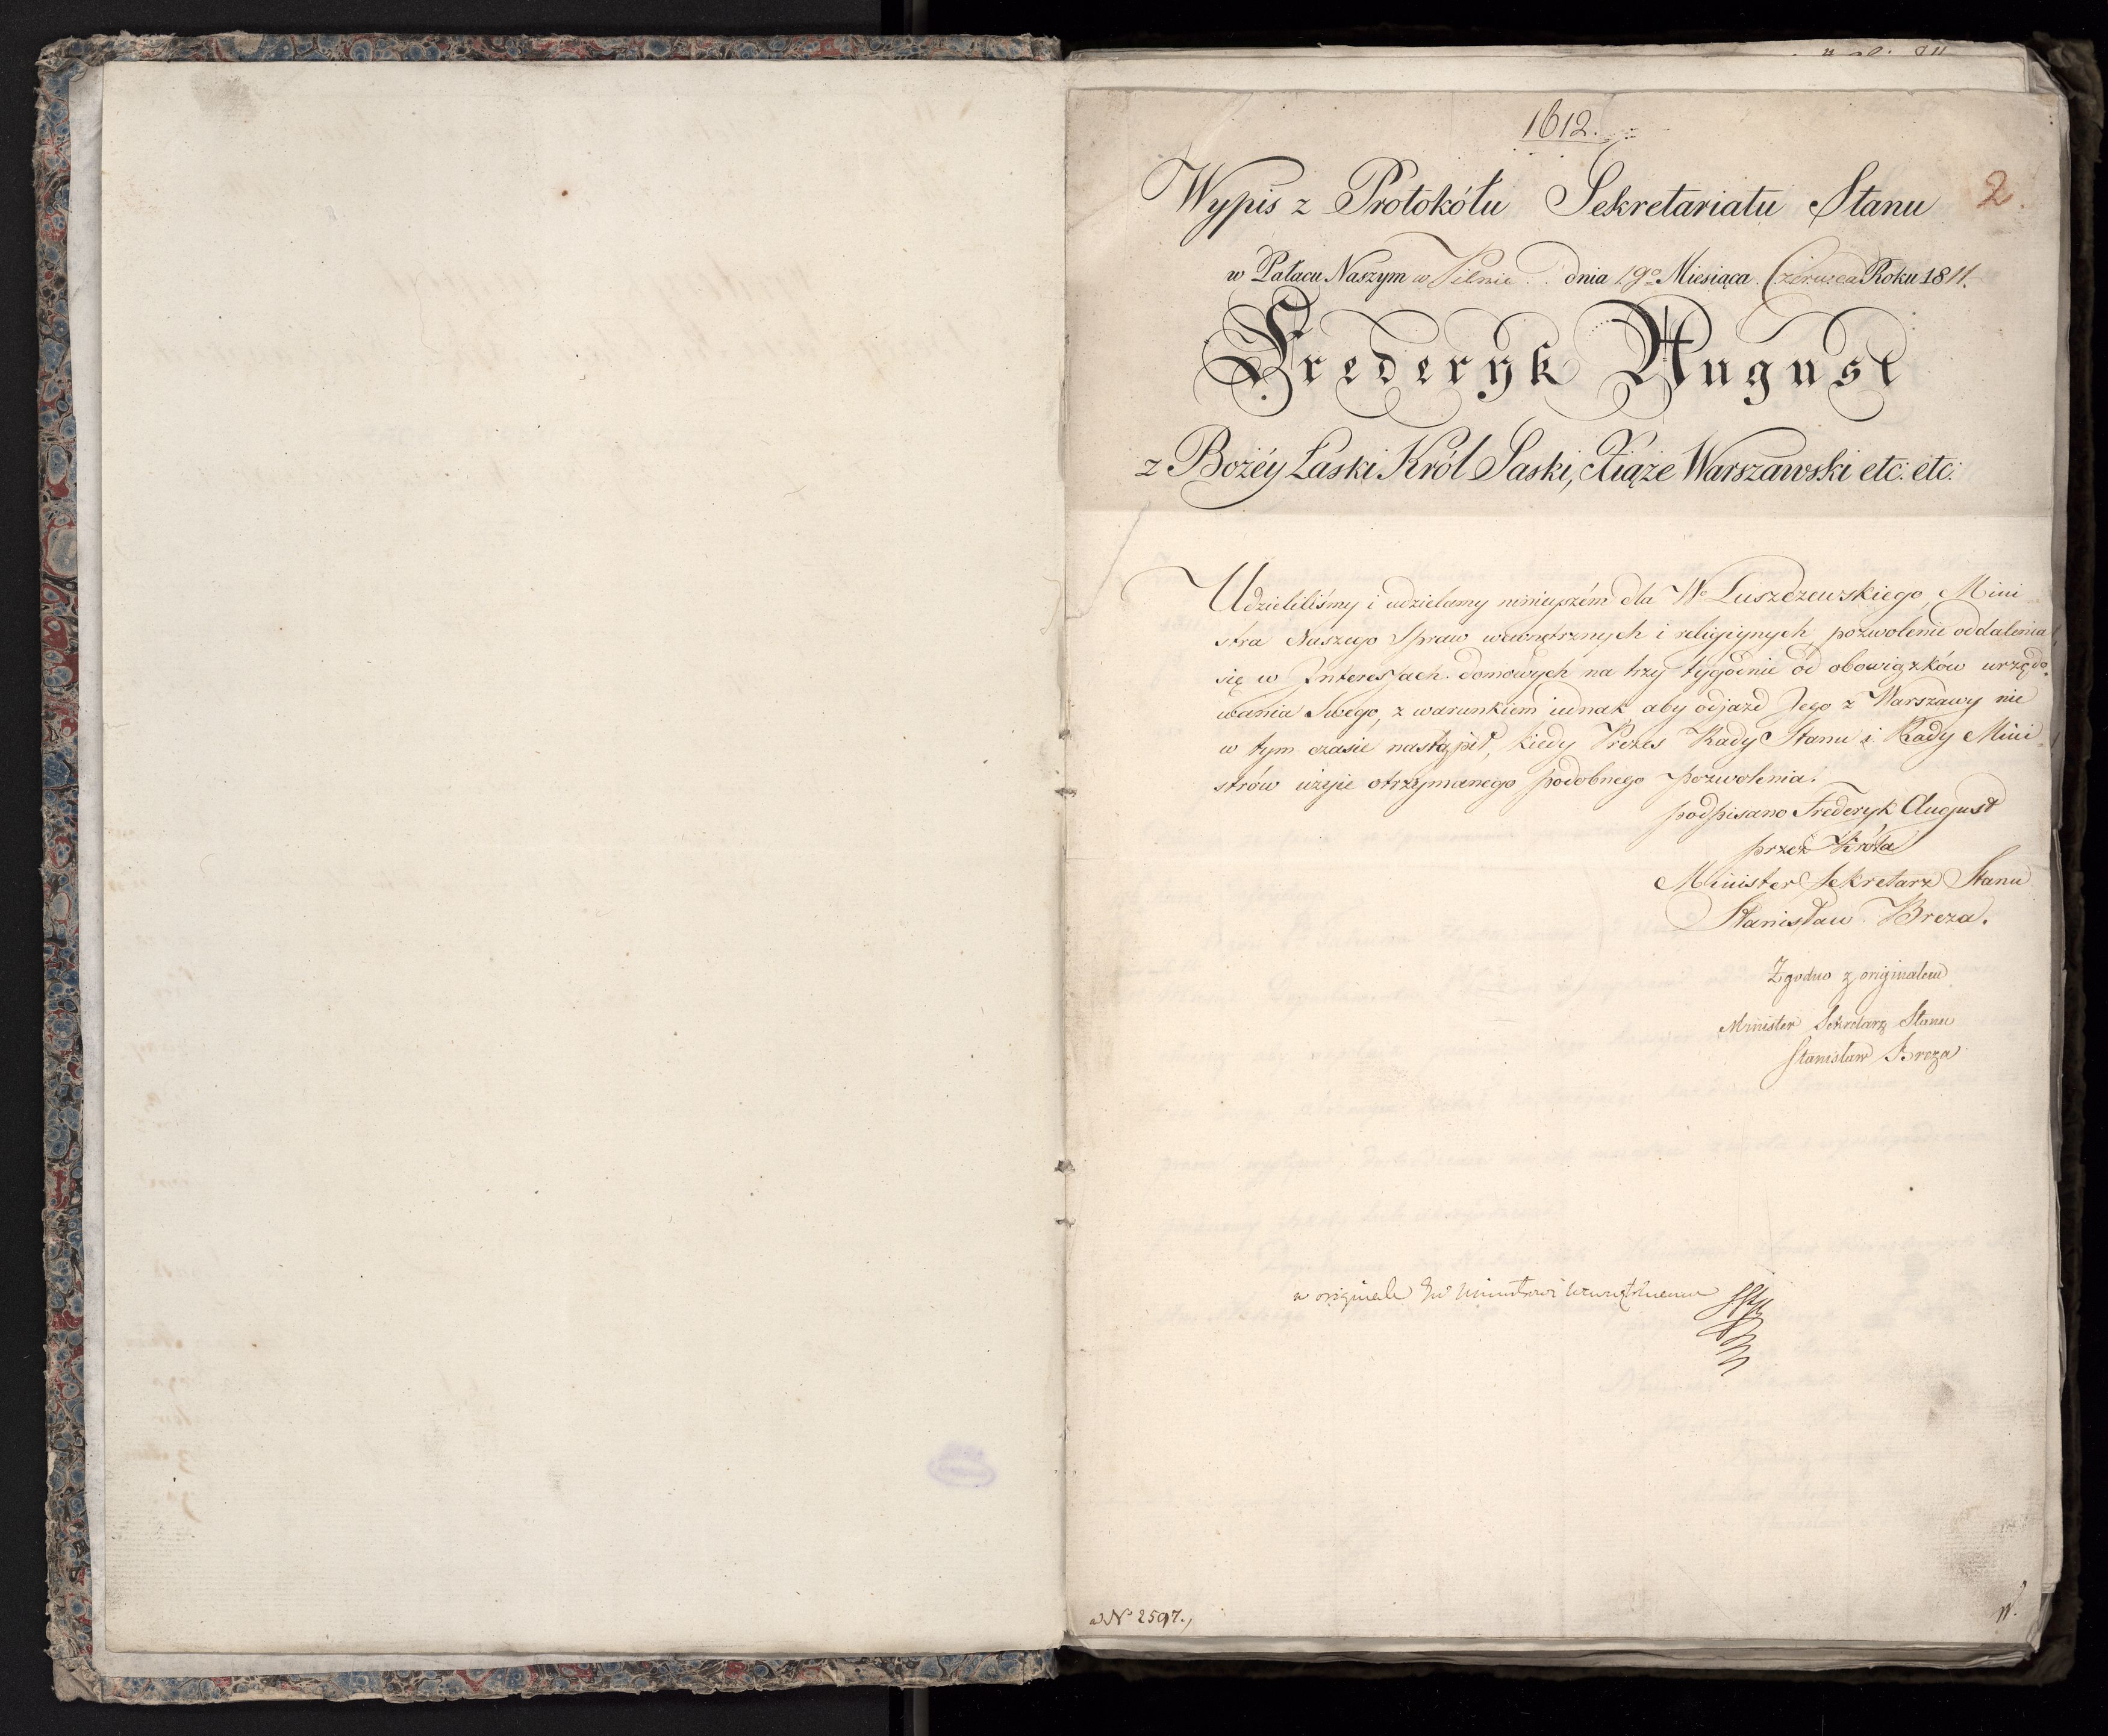 1612.
Wypis z Protokółu Sekretariatu Stanu
2.
w Pałacu Naszym w Pilnie dnia 19o Miesiąca Czerwca Roku 1811.
Frederyk August
z Bożéy Łaski Król Saski, Xiąże Warszawski etc: etc:
Udzieliliśmy i udzielamy ninieyszém dla Wo Łuszczewskiego, Mini
stra Naszego Spraw wewnętrznych i religiynych pozwolenie oddalenia
się w Interessach domowych na trzy tygodnie od obowiązków urzędo
wania Swego, z warunkiem iednak aby odjazd Jego z Warszawy nie
w tym czasie nastąpił, kiedy Prezes Rady Stanu i Rady Mini
strów użyie otrzymanego podobnego pozwolenia.
podpisano Frederyk August
przez Króla
Minister Sekretarz Stanu
Stanisław Breza.
Zgodno z originałem
Minister Sekretarz Stanu
Stanisław Breza
w originale Ministrowi
ad No 2597.,